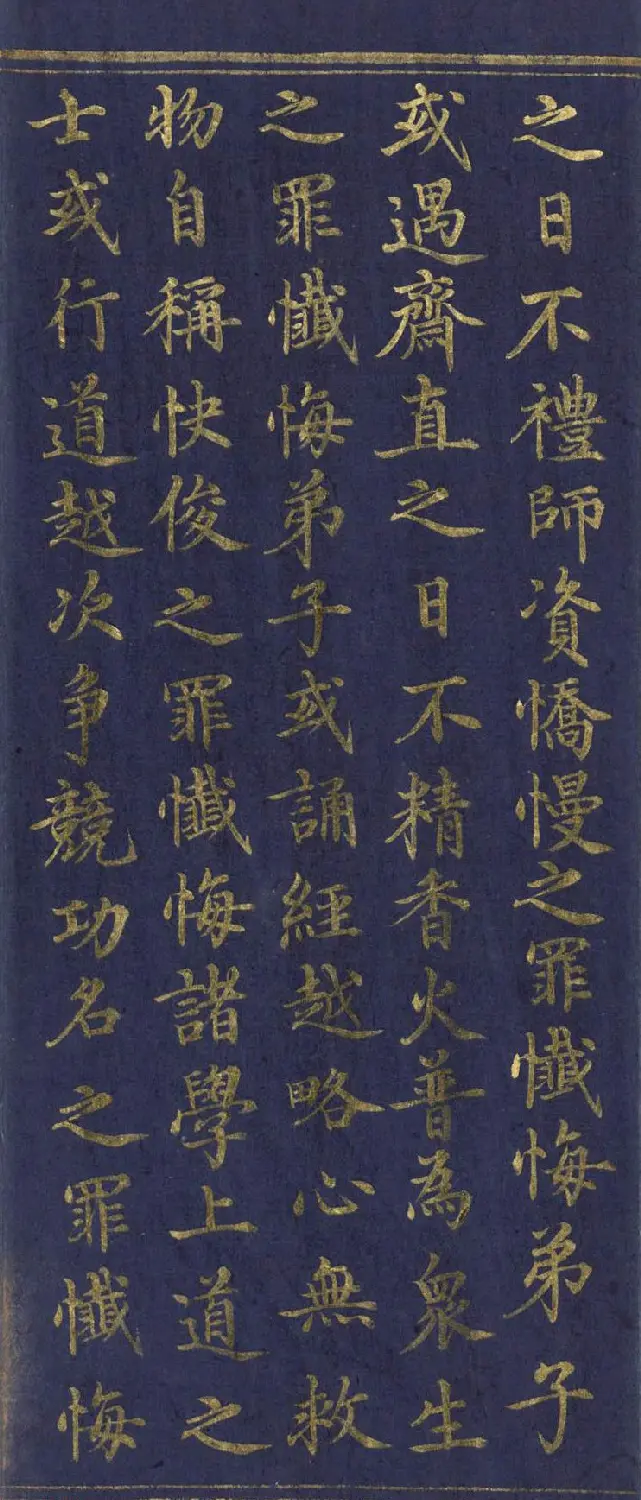 之日不禮師資憍慢之罪懺悔弟子
或遇齋直之日不精香火普為衆生
之罪懺悔弟子或誦經越略心無救
物自稱快俊之罪懺悔諸學上道之
士或行道越次争競功名之罪懺悔